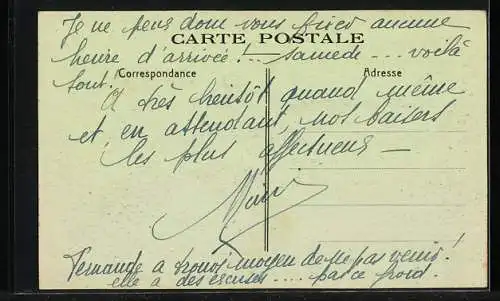 Je ne peux donc vous fixer aucune
CARTE POSTALE
heure d'arrivée !... samedi ... voilà
tout !
Correspondance
Adresse
A très bientôt quand même
et, en attendant, nos baisers
les plus affectueux —
Fernande a trouvé moyen de ne pas venir !
elle a des excuses .... par ce froid.